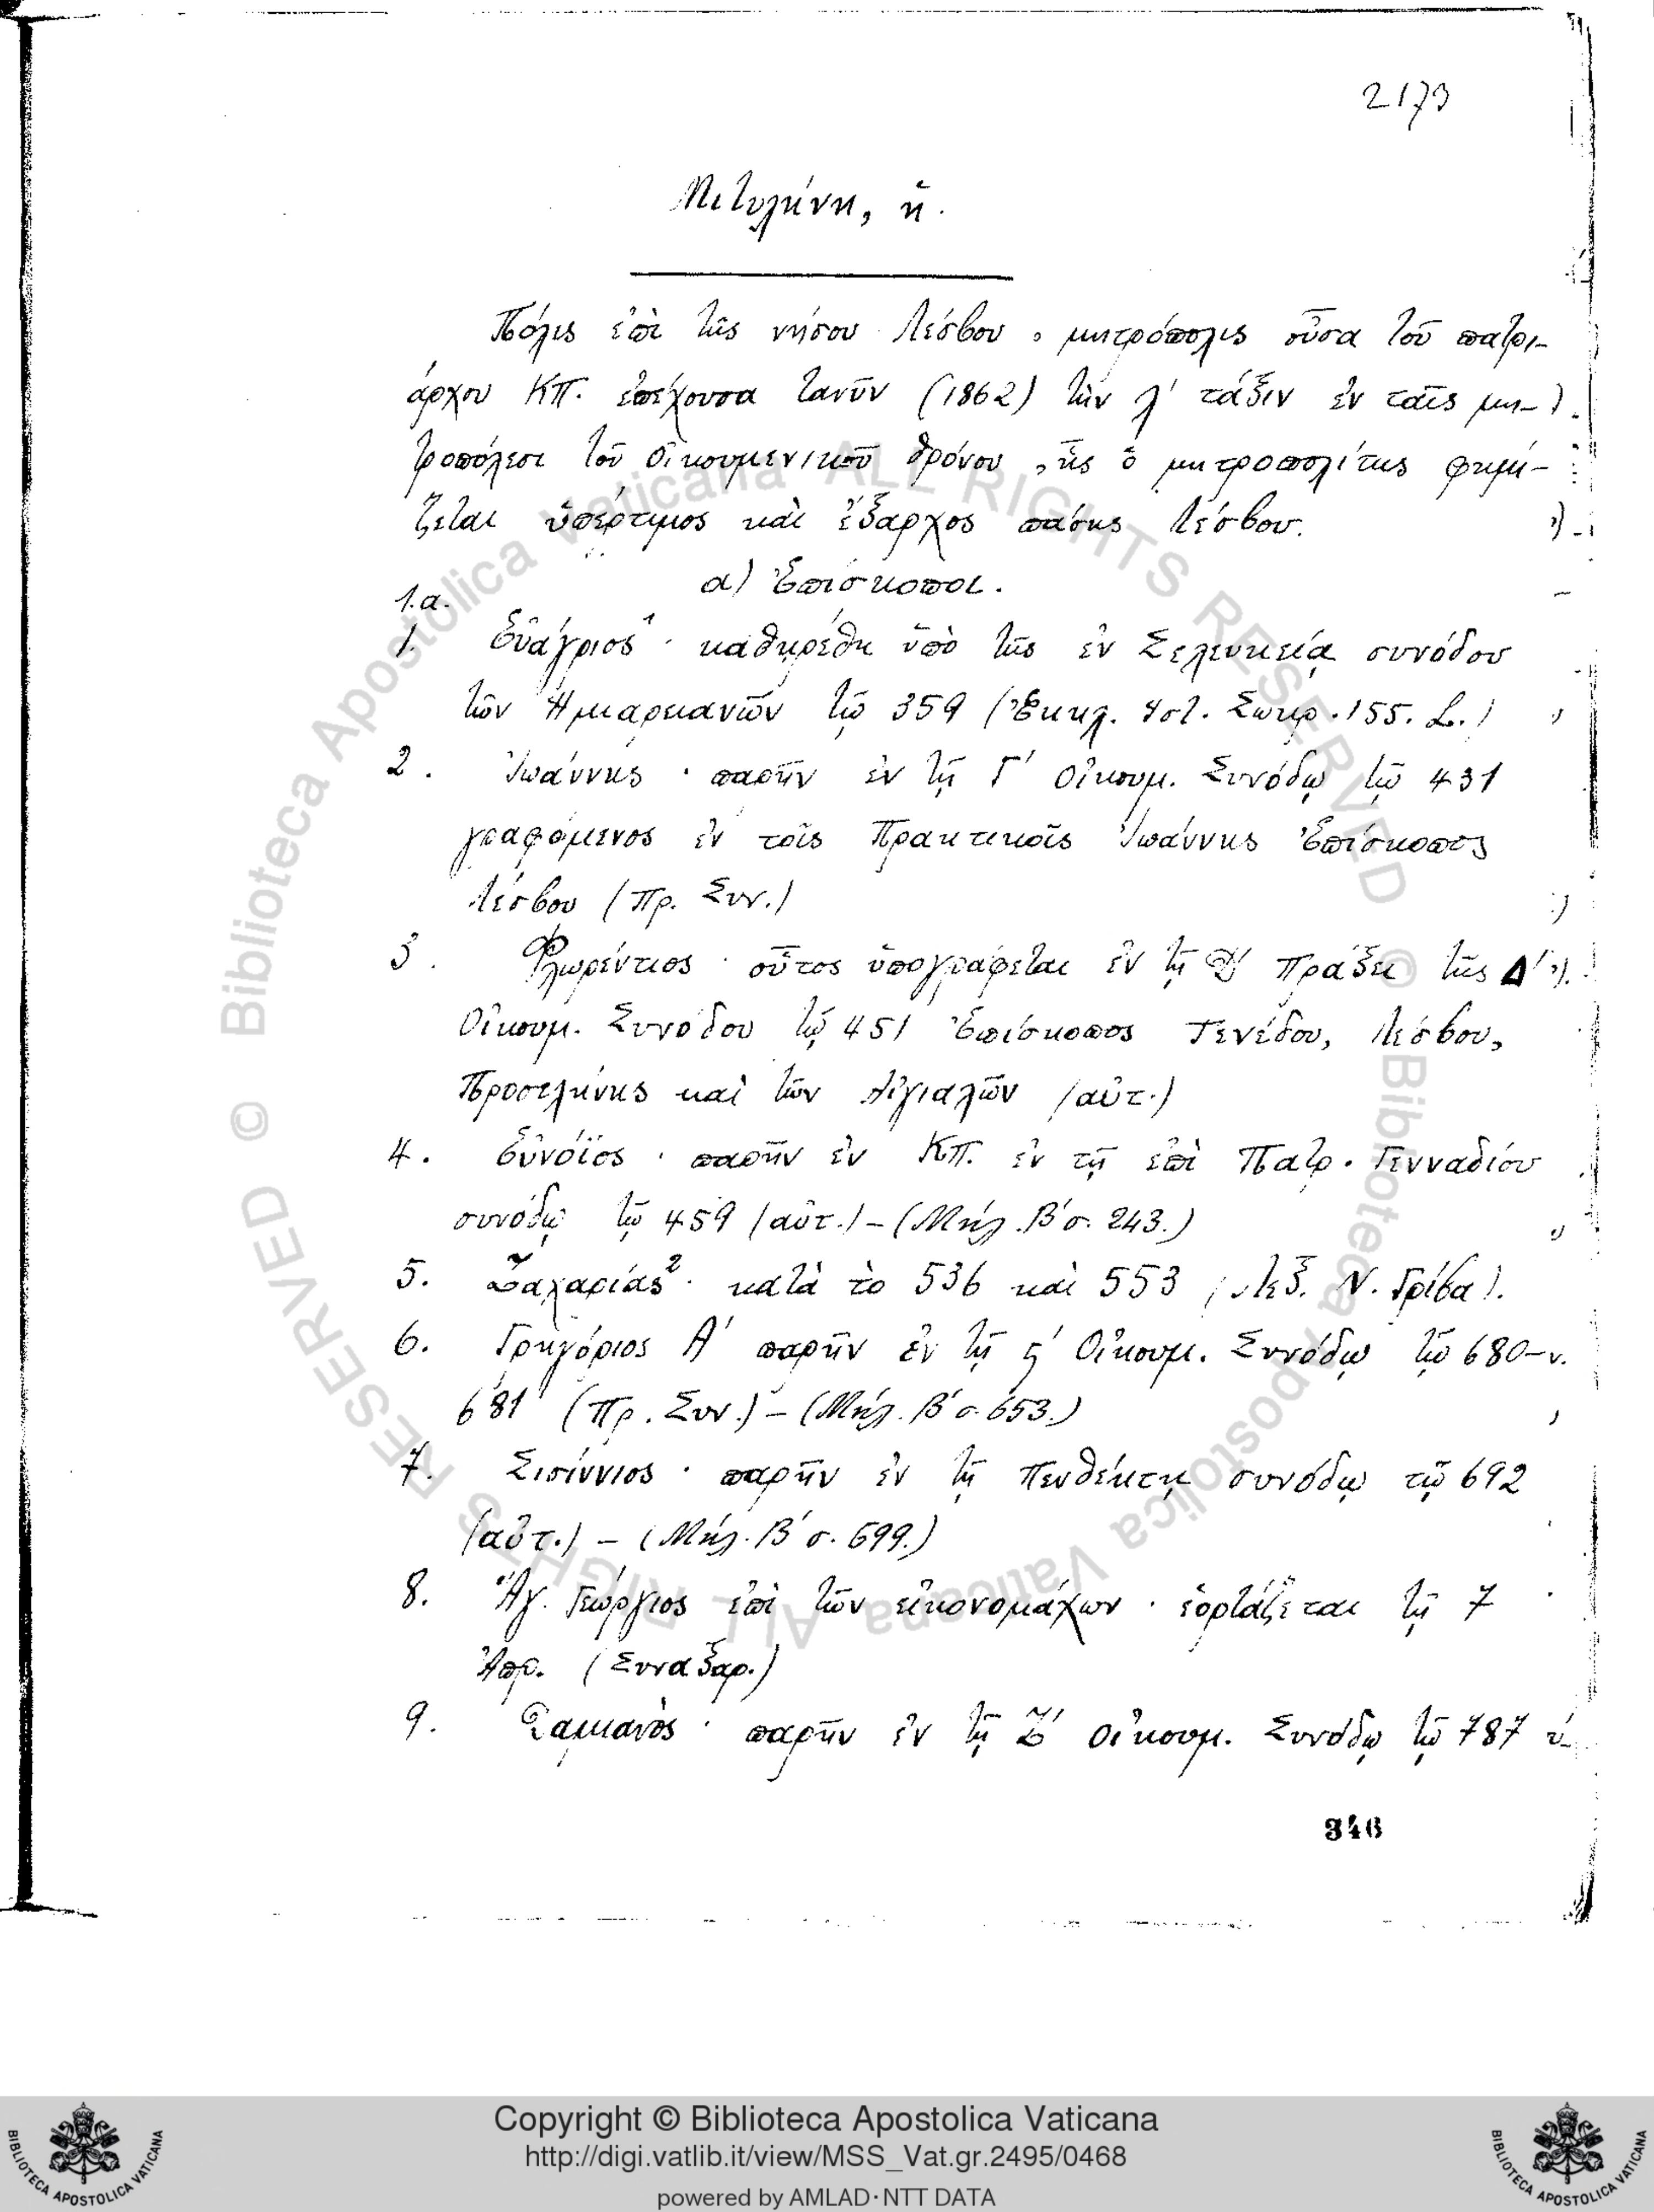 2173
Μιτυλήνη, ἡ.
Πόλις ἐπὶ τῆς νήσου Λέσβου, μητρόπολις οὖσα τοῦ πατρι-
άρχου ΚΠ. ἐπέχουσα τανῦν (1862) τὴν λ' τάξιν ἐν ταῖς μη-
τροπόλεσι τοῦ Οἰκουμενικοῦ θρόνου, ἧς ὁ μητροπολίτης φημί-
ζεται ὑπέρτιμος καὶ ἔξαρχος πάσης Λέσβου.
α) Ἐπίσκοποι.
1.α.
1. Εὐάγριος¹· καθῃρέθη ὑπὸ τῆς ἐν Σελευκείᾳ συνόδου
τῶν Ἡμιαρειανῶν τῷ 359 (Ἐκκλ. Ἱστ. Σωκρ. 155. L.)
2. Ἰωάννης· παρῆν ἐν τῇ Γ' Οἰκουμ. Συνόδῳ τῷ 431
γραφόμενος ἐν τοῖς Πρακτικοῖς Ἰωάννης Ἐπίσκοπος
Λέσβου (Πρ. Συν.)
3. Φλωρέντιος· οὗτος ὑπογράφεται ἐν τῇ Πράξει τῆς Δ'
Οἰκουμ. Συνόδου τῷ 451 Ἐπίσκοπος Τενέδου, Λέσβου,
Προσελήνης καὶ τῶν Αἰγιαλῶν (αὐτ.)
4. Εὐνόϊος· παρῆν ἐν ΚΠ. ἐν τῇ ἐπὶ Πατρ. Γενναδίου
συνόδῳ τῷ 459 (αὐτ.) – (Μήλ. Β' σ. 243.)
5. Ζαχαρίας²· κατὰ τὸ 536 καὶ 553 (Λεξ. Ν. Γρίβα).
6. Γρηγόριος Α' παρῆν ἐν τῇ ϛ' Οἰκουμ. Συνόδῳ τῷ 680–
681 (Πρ. Συν.) – (Μήλ. Β' σ. 653.)
7. Σισίννιος· παρῆν ἐν τῇ Πενθέκτῃ συνόδῳ τῷ 692
(αὐτ.) – (Μήλ. Β' σ. 699.)
8. Ἅγ. Γεώργιος ἐπὶ τῶν εἰκονομάχων· ἑορτάζεται τῇ 7
Ἀπρ. (Συναξαρ.)
9. Δαμιανὸς· παρῆν ἐν τῇ Ζ' Οἰκουμ. Συνόδῳ τῷ 787 ὑ-
346
© Biblioteca Apostolica Vaticana ALL RIGHTS RESERVED © Biblioteca Apostolica Vaticana ALL RIGHTS RESERVED
Copyright © Biblioteca Apostolica Vaticana
http://digi.vatlib.it/view/MSS_Vat.gr.2495/0468
powered by AMLAD·NTT DATA
BIBLIOTECA APOSTOLICA VATICANA
BIBLIOTECA APOSTOLICA VATICANA